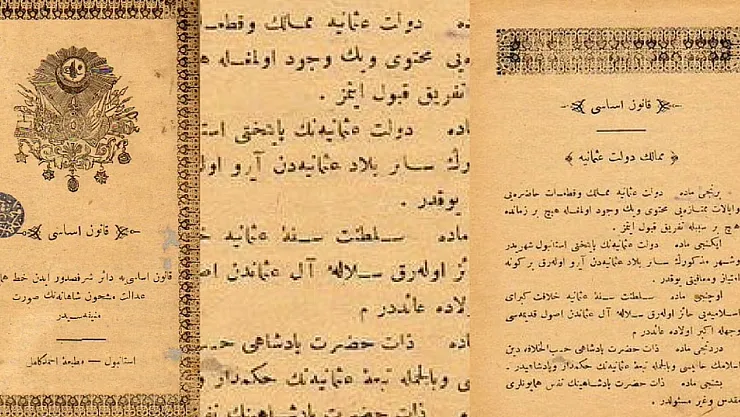 قانون اساسی
قانون اساسی‌یه دائر شرفصدور ایدن خط هما
عدالت مشحون شاهانه‌نك صورت
منیفه‌سیدر
استانبول — مطبعهٔ احمد کامل
ماده دولت عثمانیه ممالك وقطعـا
محتوی ویك وجود اولمغله ه
تفریق قبول ایتمز .
ماده دولت عثمانیه‌نك پایتختی استا
سـائر بلاد عثمانیه‌دن آیرو اوله
یوقدر .
ماده سلطنت سنیهٔ عثمانیه خ
حائز اوله‌رق سـلالهٔ آل عثماندن اصو
اولاده عائددر م
ماده ذات حضرت پادشاهی حسب
وبالجمله تبعهٔ عثمانیه‌نك حکمدار و
ماده ذات حضرت پادشاهینك نفس هم
قانون اساسی
ممالك دولت عثمانیه
برنجی ماده دولت عثمانیه ممالك وقطعات حاضره‌یی
وایالات ممتازه‌یی محتوی ویك وجود اولمغله هیچ بر زمانده
هیچ بر سببله تفریق قبول ایتمز .
ایکنجی ماده دولت عثمانیه‌نك پایتختی استانبول شهریدر
وشهر مذکورك سـائر بلاد عثمانیه‌دن آیرو اوله‌رق بر کونه
امتیاز ومعافیتی یوقدر .
اوچنجی ماده سلطنت سنیهٔ عثمانیه خلافت کبرای
اسلامیه‌یی حائز اوله‌رق سلالهٔ آل عثماندن اصول قدیمه‌سی
وجهله اکبر اولاده عائددر م
دردنجی ماده ذات حضرت پادشاهی حسب‌الخلافه دین
اسلامك حامیسی وبالجمله تبعهٔ عثمانیه‌نك حکمدار وپادشاهیدر .
بشنجی ماده ذات حضرت پادشاهینك نفس همایونلری
مقدس وغیر مسئولدر .